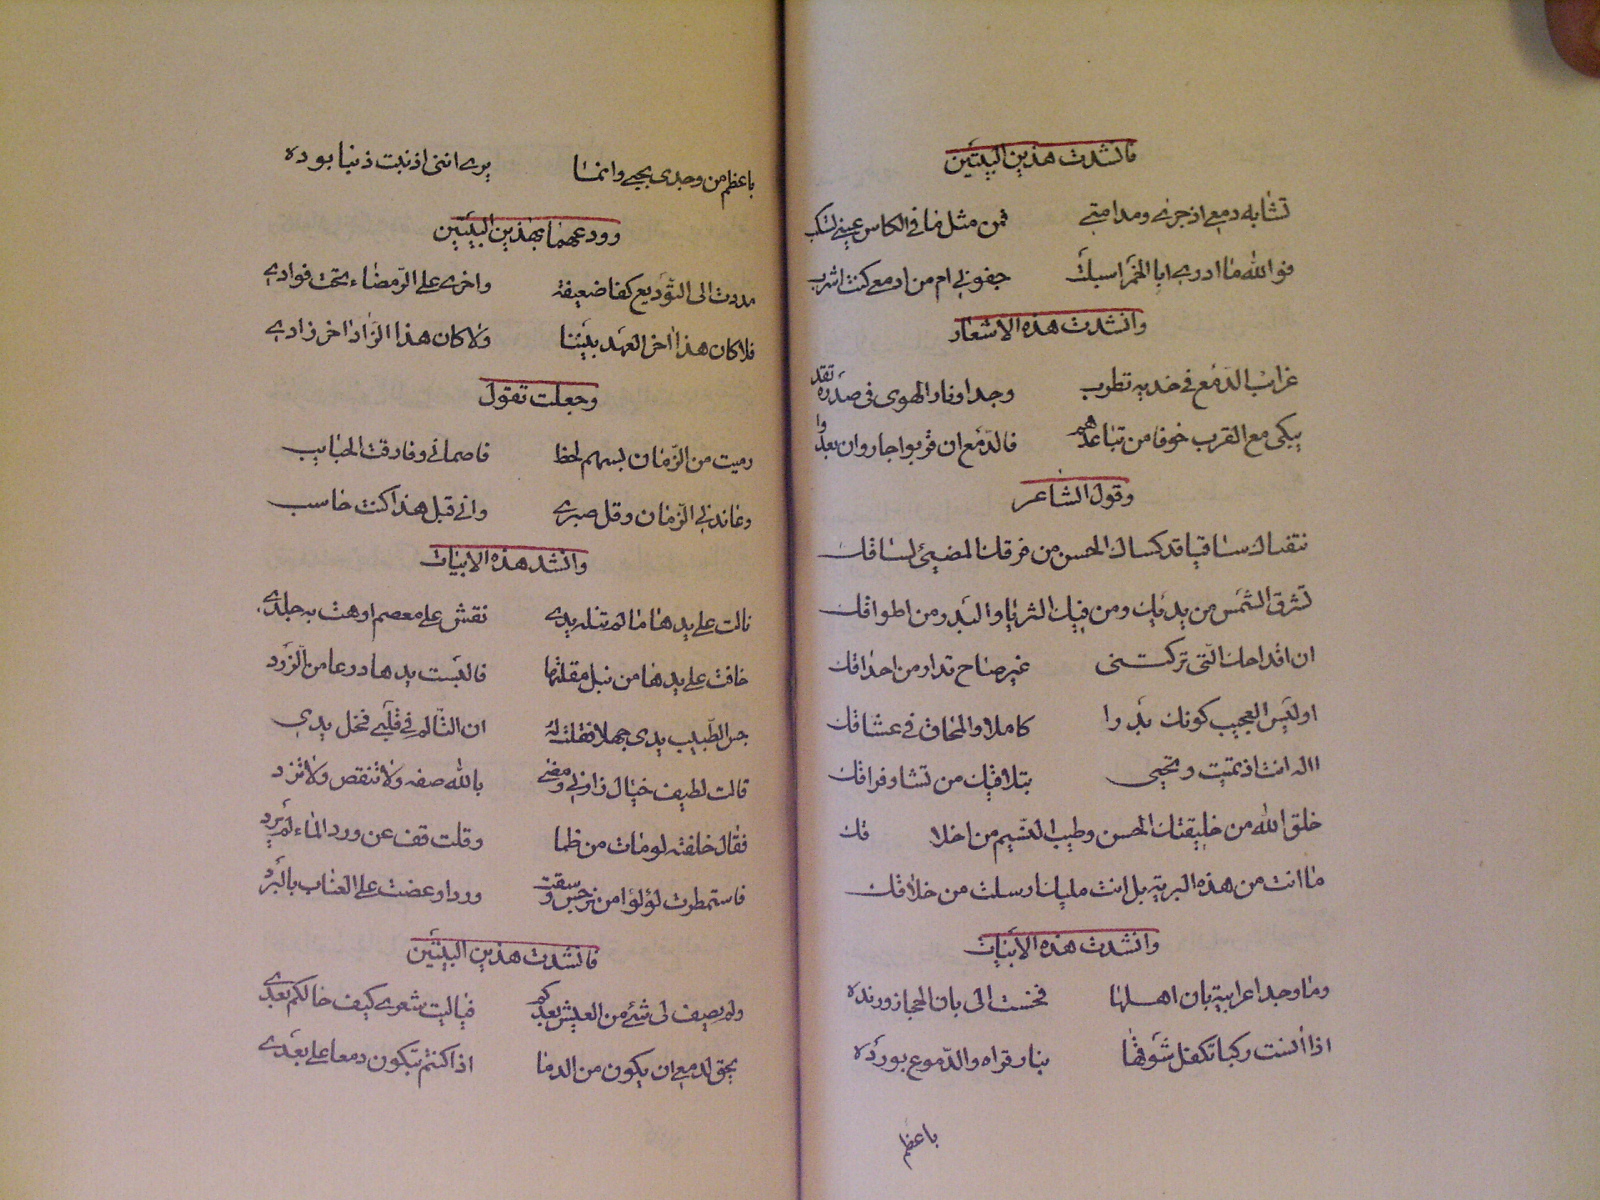 فانشدت هذين البيتين
تشابه دمعي اذ جرى ومدامتي فمن مثل ما في الكاس عيني تسكب
فو الله ما ادري ابا الخمر اسبلت جفوني ام من ادمعي كنت اشرب
وانشدت هذه الاشعار
غراب الدمع في خديه تطرب وجدا ونار الهوى في صدره تقد
يبكي مع القرب خوفا من تباعدهم فالدمع ان قربوا جار وان بعدوا
وقول الشاعر
ساقيا قد كساك الحسن من فرقك المضيئ لساقك
تشرق الشمس من يديك ومن فيك الثريا والبدر من اطواقك
ان اقداحك التي تركتني غير صاح تدار من احداقك
اوليس العجيب كونك بدرا كاملا والمحاق في عشاقك
االه انت اذ تميت وتحيي بتلاقيك من تشا وفراقك
خلق الله من خليقتك الحسن وطيب النسيم من اخلاقك
ما انت من هذه البرية بل انت مليك ارسلت من خلاقك
وانشدت هذه الابيات
وما وجد اعرابية بان اهلها فحنت الى بان الحجاز ورنده
اذا انست ركبا تكفل شوقها بنار قراه والدموع بورده
باعظم
باعظم من وجدي بحبي وانما يرى انني اذنبت ذنبا بوده
وودعهما بهذين البيتين
مددت الى التوديع كفا ضعيفة واخرى على الرمضاء تحت فوادي
فلا كان هذا اخر العهد بيننا ولا كان هذا الزاد اخر زادي
وجعلت تقول
رميت من الزمان بسهم لحظ فاصماني وفارقت الحبايب
وعاندني الزمان وقل صبري واني قبل هذا كنت حاسب
وانشد هذه الابيات
نالت على يدها ما لم تنله يدي نقش على معصم اوهت به جلدي
خافت على يدها من نبل مقلتها فالبست يدها درعا من الزرد
جس الطبيب يدي جهلا فقلت له ان التالم في قلبي فخل يدي
قالت لطيف خيال زارني ومضى بالله صفه ولا تنقص ولا تزد
فقال خلفته لو مات من ظما وقلت قف عن ورد الماء لم يرد
فاستمطرت لؤلؤا من نرجس وسقت وردا وعضت على العناب بالبرد
فانشدت هذين البيتين
ولم يصف لي شئ من العيش بعدكم فياليت شعري كيف حالكم بعدي
يحق لدمعي ان يكون من الدما اذا كنتم تبكون دمعا على بعدي